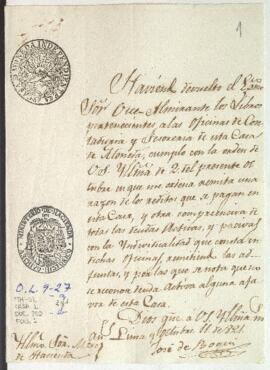 1
Haviend. devuelto el Exmo
Sor. Vice-Almirante los Libros
pertenecientes, a las oficinas de Con-
taduria y Tesoreria de esta Casa
de Moneda, cumplo con la orden de
V.S. Yllma. de 2. del presente oc-
tubre en que me ordena remita una
razon de los reditos que se pagan en
esta Casa, y otra comprensiva de
todas las deudas Activas, y pasivas
con la Individualidad que consta en
dichas oficinas, remitiend. las ad-
juntas, y por las que se nota que no
se reconoce deuda activa alguna a fa-
vor de esta Casa.
Dios gue. a V.S. Yllma. m.
as. Lima y Octubre 11 de 1821.
José de
Yllmo. Sor.
de Hacienda
MINISTERIO DE HACIENDA
O.L. 9-27